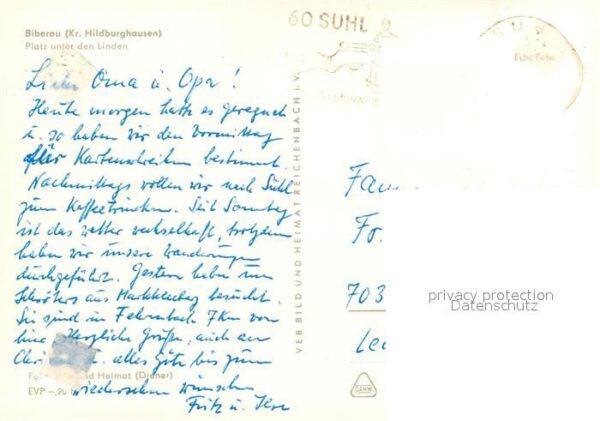 Biberau (Kr. Hildburghausen)
Platz unter den Linden
60 SUHL
Echt Foto
Oma u. Opa!
Heute morgen hatte es geregnet
u. so haben wir den Vormittag
für Kartenschreiben bestimmt.
Nachmittags wollen wir nach Suhl
zum Kaffeetrinken. Seit Sonntag
ist das Wetter wechselhaft, trotzdem
haben wir unsere Wanderungen
durchgeführt. Gestern haben uns
Schröters aus Markkleeberg besucht.
Sie sind in Fehrenbach 7km von
Herzliche Grüße, auch an
u. alles Gute bis zum
wiedersehen wünschen
Fritz u. Ilse
und Heimat (Djener)
EVP -,20
VEB BILD UND HEIMAT REICHENBACH i. V.
Fam
Fr.
703
Lei
privacy protection
Datenschutz